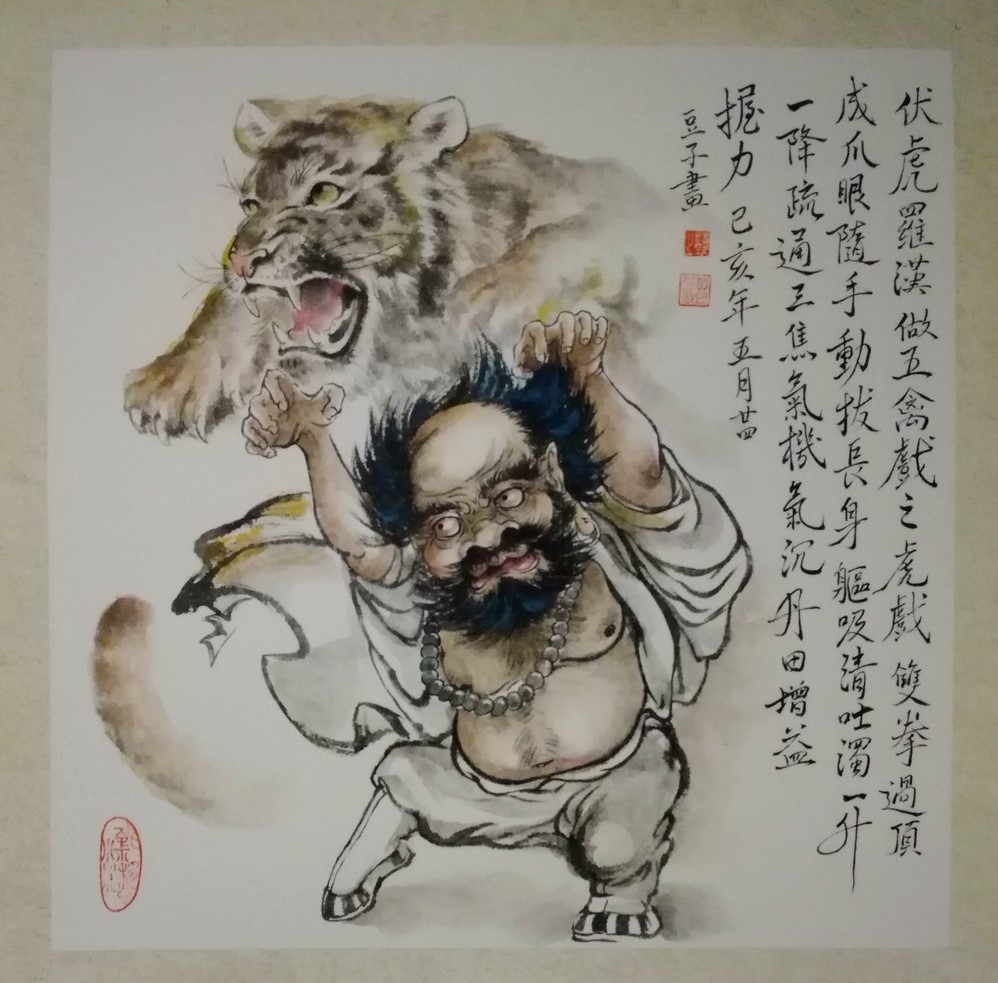 伏虎羅漢做五禽戲之虎戲雙拳過頂
成爪眼隨手動拔長身軀吸清吐濁一升
一降疏通三焦氣機氣沉丹田增益
握力 己亥年五月廿四
豆子畫